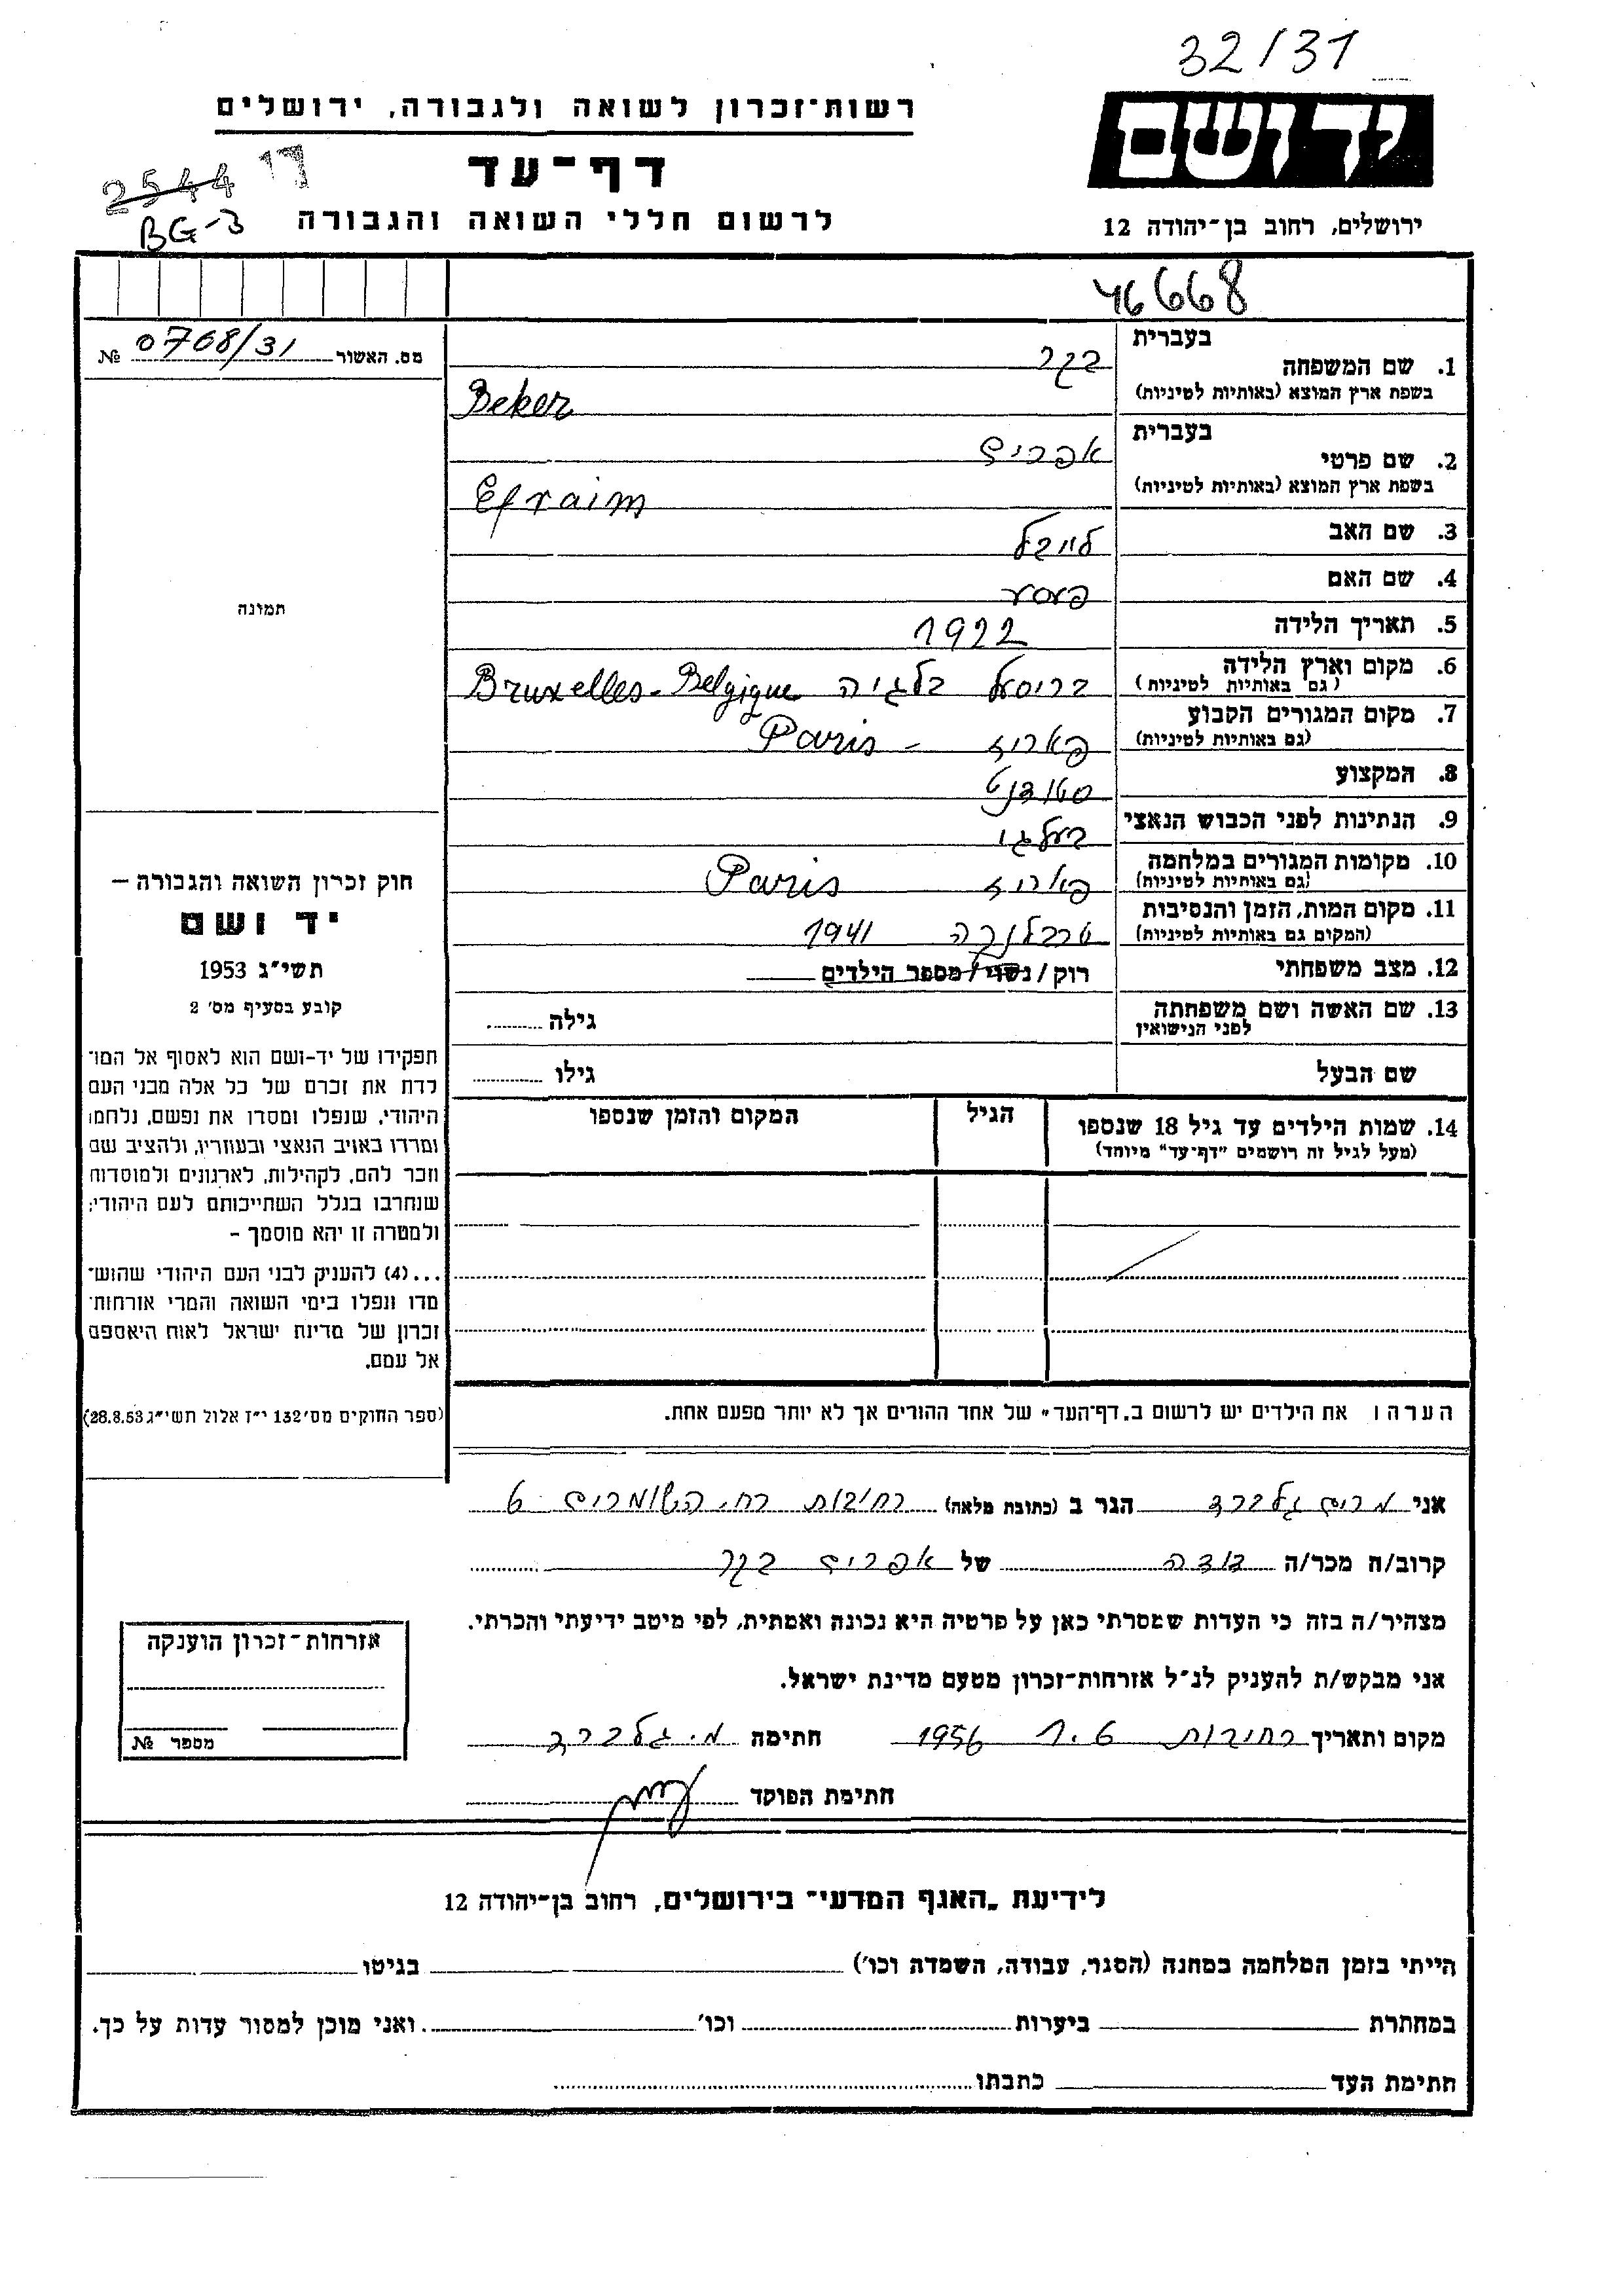 32/31
רשות־זכרון לשואה ולגבורה, ירושלים
יד ושם
דף־עד
2544
BG-3
לרשום חללי השואה והגבורה
ירושלים, רחוב בן־יהודה 12
46668
מס. האשור № 0768/31
בעברית
1. שם המשפחה בקר
בשפת ארץ המוצא (באותיות לטיניות) Beker
בעברית
2. שם פרטי אפרים
בשפת ארץ המוצא (באותיות לטיניות) Efraim
3. שם האב לייבל
4. שם האם
5. תאריך הלידה 1922
6. מקום וארץ הלידה בריסל בלגיה Bruxelles - Belgique
(גם באותיות לטיניות)
7. מקום המגורים הקבוע פאריז - Paris
(גם באותיות לטיניות)
8. המקצוע סטודנט
9. הנתינות לפני הכבוש הנאצי בעלגי
10. מקומות המגורים במלחמה פאריז Paris
(גם באותיות לטיניות)
11. מקום המות, הזמן והנסיבות טרבלנקה 1941
(המקום גם באותיות לטיניות)
12. מצב משפחתי רוק / נשוי / מספר הילדים
13. שם האשה ושם משפחתה גילה
לפני הנישואין
שם הבעל גילו
14. שמות הילדים עד גיל 18 שנספו הגיל המקום והזמן שנספו
(מעל לגיל זה רושמים "דף־עד" מיוחד)
תמונה
חוק זכרון השואה והגבורה –
יד ושם
תשי"ג 1953
קובע בסעיף מס' 2
תפקידו של יד-ושם הוא לאסוף אל המו־
לדת את זכרם של כל אלה מבני העם
היהודי, שנפלו ומסרו את נפשם, נלחמו
ומרדו באויב הנאצי ובעוזריו, ולהציב שם
וזכר להם, לקהילות, לארגונים ולמוסדות
שנחרבו בגלל השתייכותם לעם היהודי;
ולמטרה זו יהא מוסמך –
...(4) להעניק לבני העם היהודי שהוש־
מדו ונפלו בימי השואה והמרי אזרחות־
זכרון של מדינת ישראל לאות היאספם
אל עמם.
(ספר החוקים מס' 132 י"ז אלול תשי"ג 28.8.53)
הערה: את הילדים יש לרשום ב„דף־העד" של אחד ההורים אך לא יותר מפעם אחת.
אני מרים גלברד הגר ב (כתובת מלאה) רחובות רח. השומרים 6
קרוב/ה מכר/ה דודה של אפרים בקר
מצהיר/ה בזה כי העדות שמסרתי כאן על פרטיה היא נכונה ואמתית, לפי מיטב ידיעתי והכרתי.
אני מבקש/ת להעניק לנ"ל אזרחות־זכרון מטעם מדינת ישראל.
מקום ותאריך רחובות 1.6 1956 חתימה מ. גלברד
חתימת הפוקד
אזרחות־זכרון הוענקה
מספר №
לידיעת „האגף המדעי" בירושלים, רחוב בן־יהודה 12
הייתי בזמן המלחמה במחנה (הסגר, עבודה, השמדה וכו') בגיטו
במחתרת ביערות וכו' ואני מוכן למסור עדות על כך.
חתימת העד כתבתו